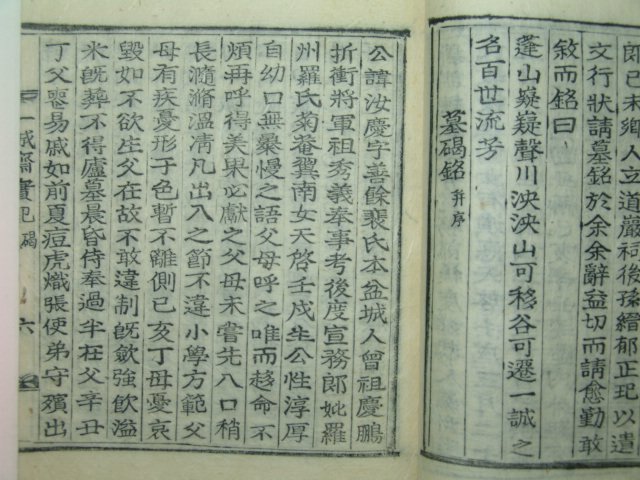 郎已未鄕人立道巖祠後孫縉郁正玘以遺
文行狀請墓銘於余余辭益切而請愈勤敢
敘而銘曰
蓬山嶷嶷聲川泱泱山可移谷可遷一誠之
名百世流芳
墓碣銘 幷序
公諱汝慶字善餘裴氏本盆城人曾祖慶鵬
折衝將軍祖秀義奉事考後度宣務郎妣羅
州羅氏菊菴翼南女天啓壬戌生公性淳厚
自幼口無暴慢之語父母呼之唯而趍命不
煩再呼得美果必獻之父母未嘗先入口稍
長瀡滫溫凊凡出入之節不違小學方範父
母有疾憂形于色暫不離側己亥丁母憂哀
毀如不欲生父在故不敢違制旣歛強飮溢
米旣葬不得廬墓晨昏侍奉過半在父辛丑
丁父喪易戚如前夏痘虎熾張使弟守殯出
一誠齋實記 碣 六